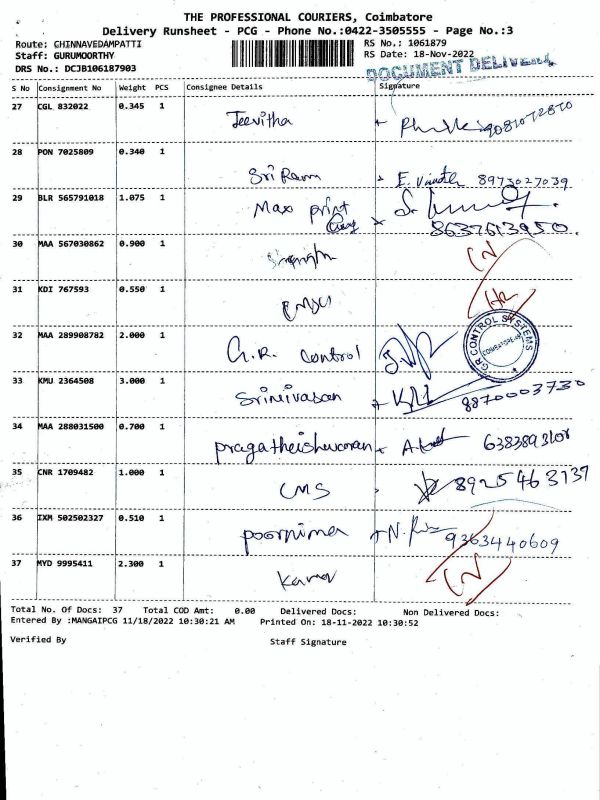 THE PROFESSIONAL COURIERS, Coimbatore
Delivery Runsheet - PCG - Phone No.:0422-3505555 - Page No.:3
Route: CHINNAVEDAMPATTI RS No.: 1061879
Staff: GURUMOORTHY RS Date: 18-Nov-2022
DRS No.: DCJB106187903 DOCUMENT DELIVERY
S No Consignment No Weight PCS Consignee Details Signature
27 CGL 832022 0.345 1 Jeevitha
28 PON 7025809 0.340 1 Sri Ram E. Vinoth 8973027039
29 BLR 565791018 1.075 1 Max print
8637613950.
30 MAA 567030862 0.900 1
31 KDI 767593 0.550 1
32 MAA 289908782 2.000 1 G.R. Control G.R CONTROL SYSTEMS
33 KMU 2364508 3.000 1 Srinivasan 8870003730
34 MAA 288031500 0.700 1 pragatheishwaran
35 CNR 1709482 1.000 1 CMS 8925463137
36 IXM 502502327 0.510 1 poornima 9363440609
37 MYD 9995411 2.300 1
Total No. Of Docs: 37 Total COD Amt: 0.00 Delivered Docs: Non Delivered Docs:
Entered By :MANGAIPCG 11/18/2022 10:30:21 AM Printed On: 18-11-2022 10:30:52
Verified By Staff Signature